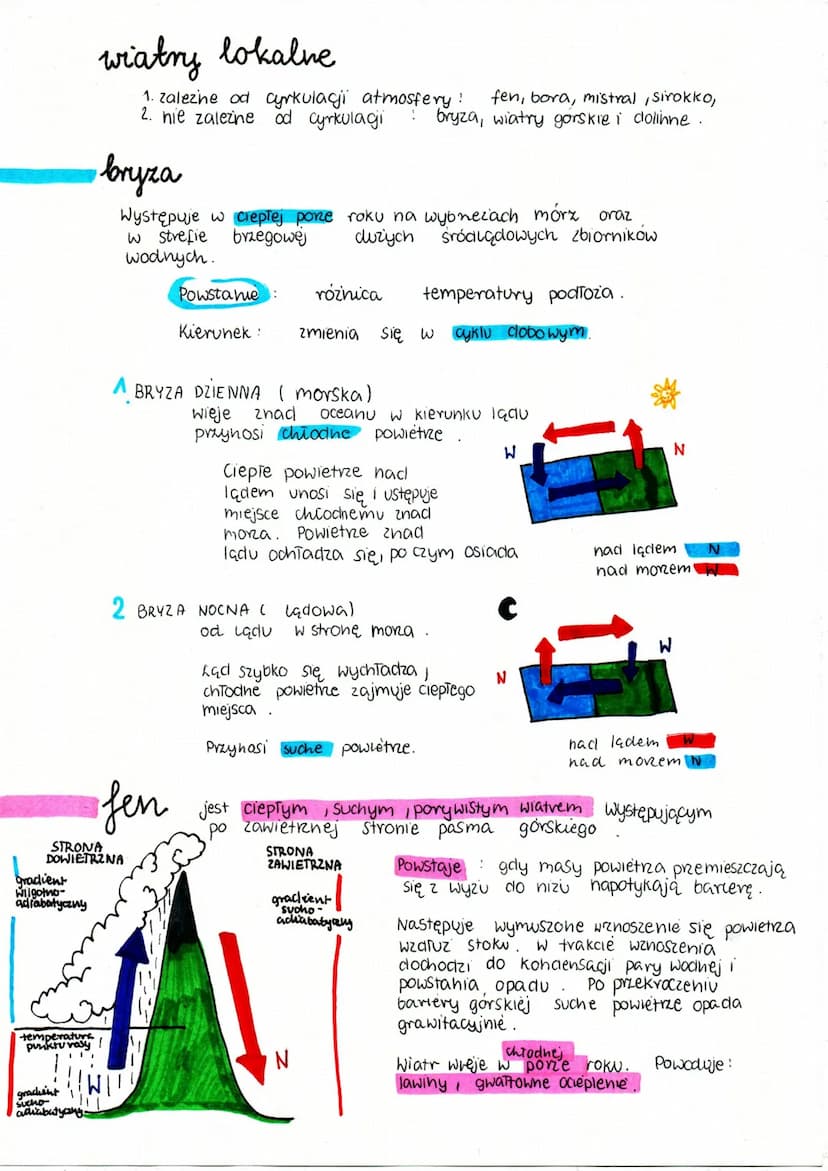 wiatry lokalne
1. zależne od cyrkulacji atmosfery : fen, bora, mistral, sirokko,
2. nie zależne od cyrkulacji : bryza, wiatry górskie i dolinne.
bryza
Występuje w ciepłej porze roku na wybrzeżach mórz oraz
w strefie brzegowej dużych śródlądowych zbiorników
wodnych.
Powstanie : różnica temperatury podłoża.
Kierunek : zmienia się w cyklu dobowym.
1. BRYZA DZIENNA ( morska)
wieje znad oceanu w kierunku lądu
przynosi chłodne powietrze.
W
N
Ciepłe powietrze nad
lądem unosi się i ustępuje
miejsce chłodnemu znad
morza. Powietrze znad
lądu ochładza się, po czym osiada
nad lądem N
nad morzem W
2 BRYZA NOCNA ( lądowa)
od lądu w stronę morza.
N
W
Ląd szybko się wychładza,
chłodne powietrze zajmuje ciepłego
miejsca.
Przynosi suche powietrze.
nad lądem W
nad morzem N
fen
jest ciepłym, suchym, porywistym wiatrem występującym
po zawietrznej stronie pasma górskiego.
STRONA
DOWIETRZNA
STRONA
ZAWIETRZNA
gradient
wilgotno-
adiabatyczny
gradient
sucho-
adiabatyczny
temperatura
punktu rosy
gradient
sucho-
adiabatyczny
W
N
Powstaje : gdy masy powietrza przemieszczają
się z wyżu do niżu napotykają barierę.
Następuje wymuszone wznoszenie się powietrza
wzdłuż stoku. W trakcie wznoszenia
dochodzi do kondensacji pary wodnej i
powstania opadu. Po przekroczeniu
bariery górskiej suche powietrze opada
grawitacyjnie.
Wiatr wieje w chłodnej porze roku. Powoduje:
lawiny, gwałtowne ocieplenie.